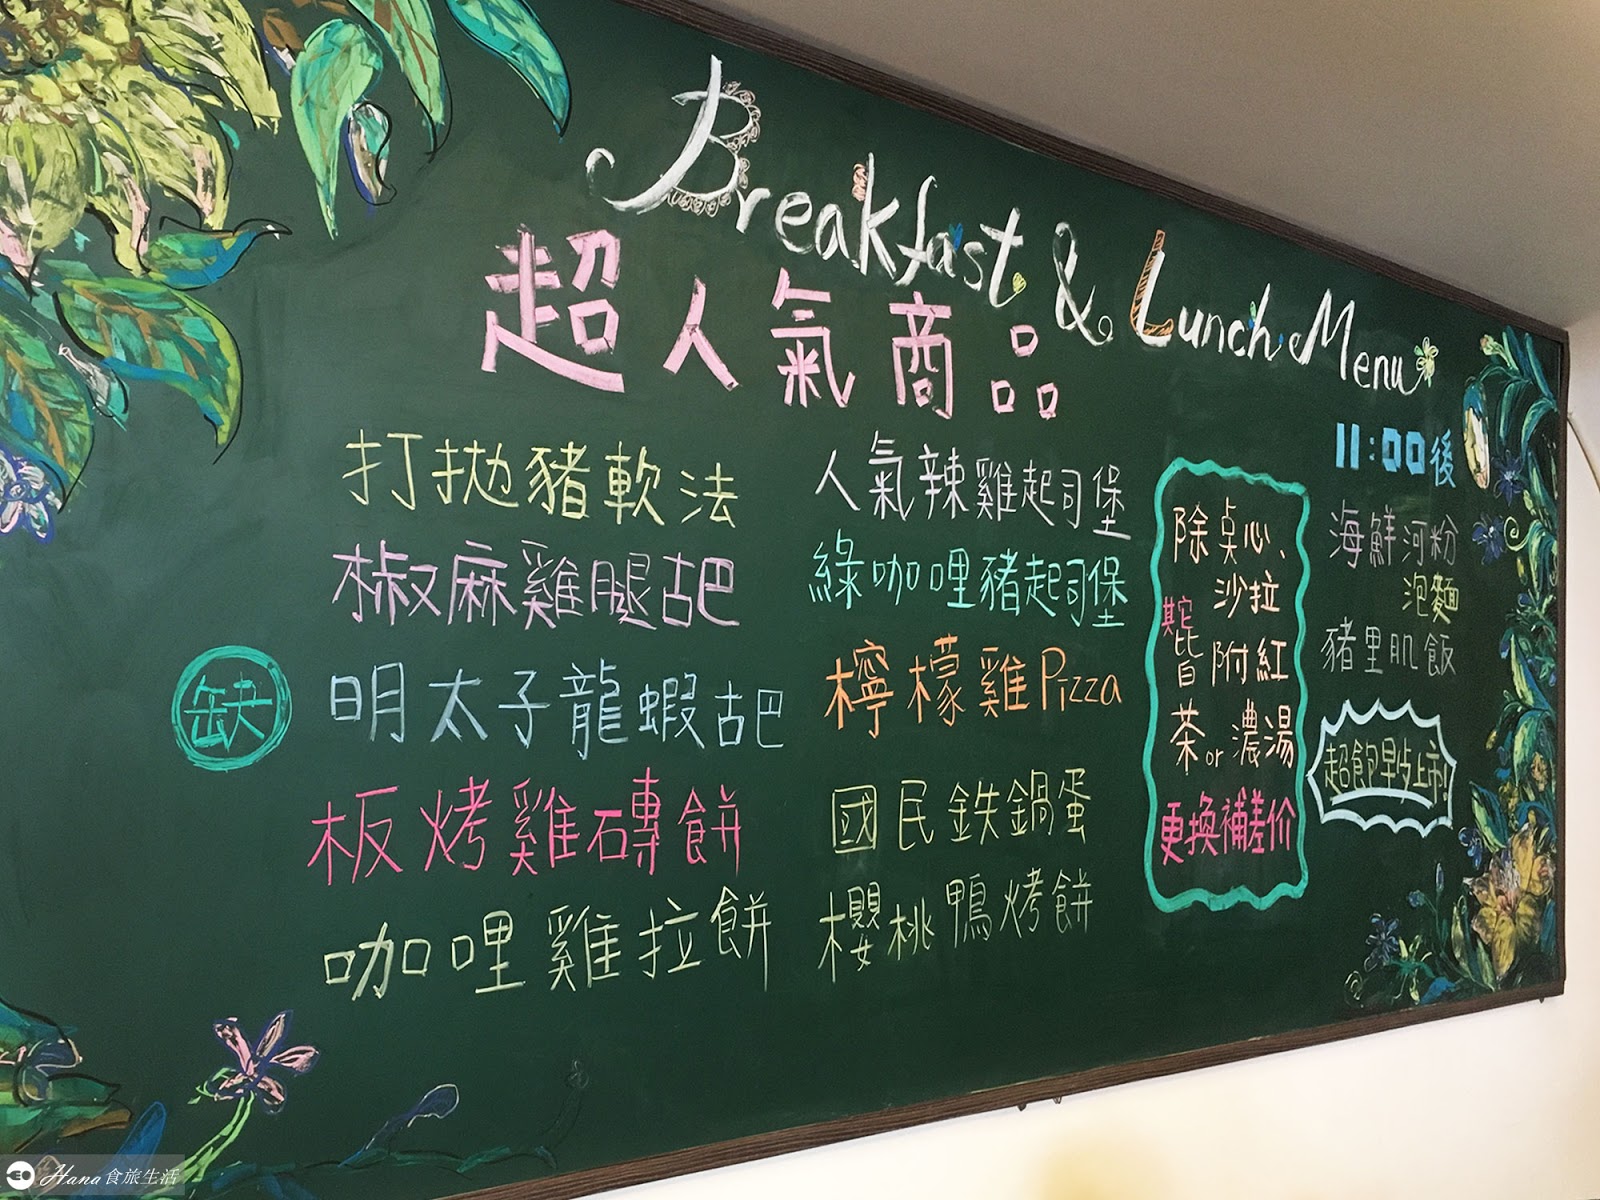 Breakfast & Lunch Menu
超人氣商品
打拋豬軟法
椒麻雞腿古巴
缺
明太子龍蝦古巴
板烤雞磚餅
咖哩雞拉餅
人氣辣雞起司堡
綠咖哩豬起司堡
檸檬雞Pizza
國民鉄鍋蛋
櫻桃鴨烤餅
除桌心、
沙拉
其它
皆附紅
茶or濃湯
更換補差价
11:00後
海鮮河粉
泡麵
豬里肌飯
超飽早點上市!
Hana食旅生活